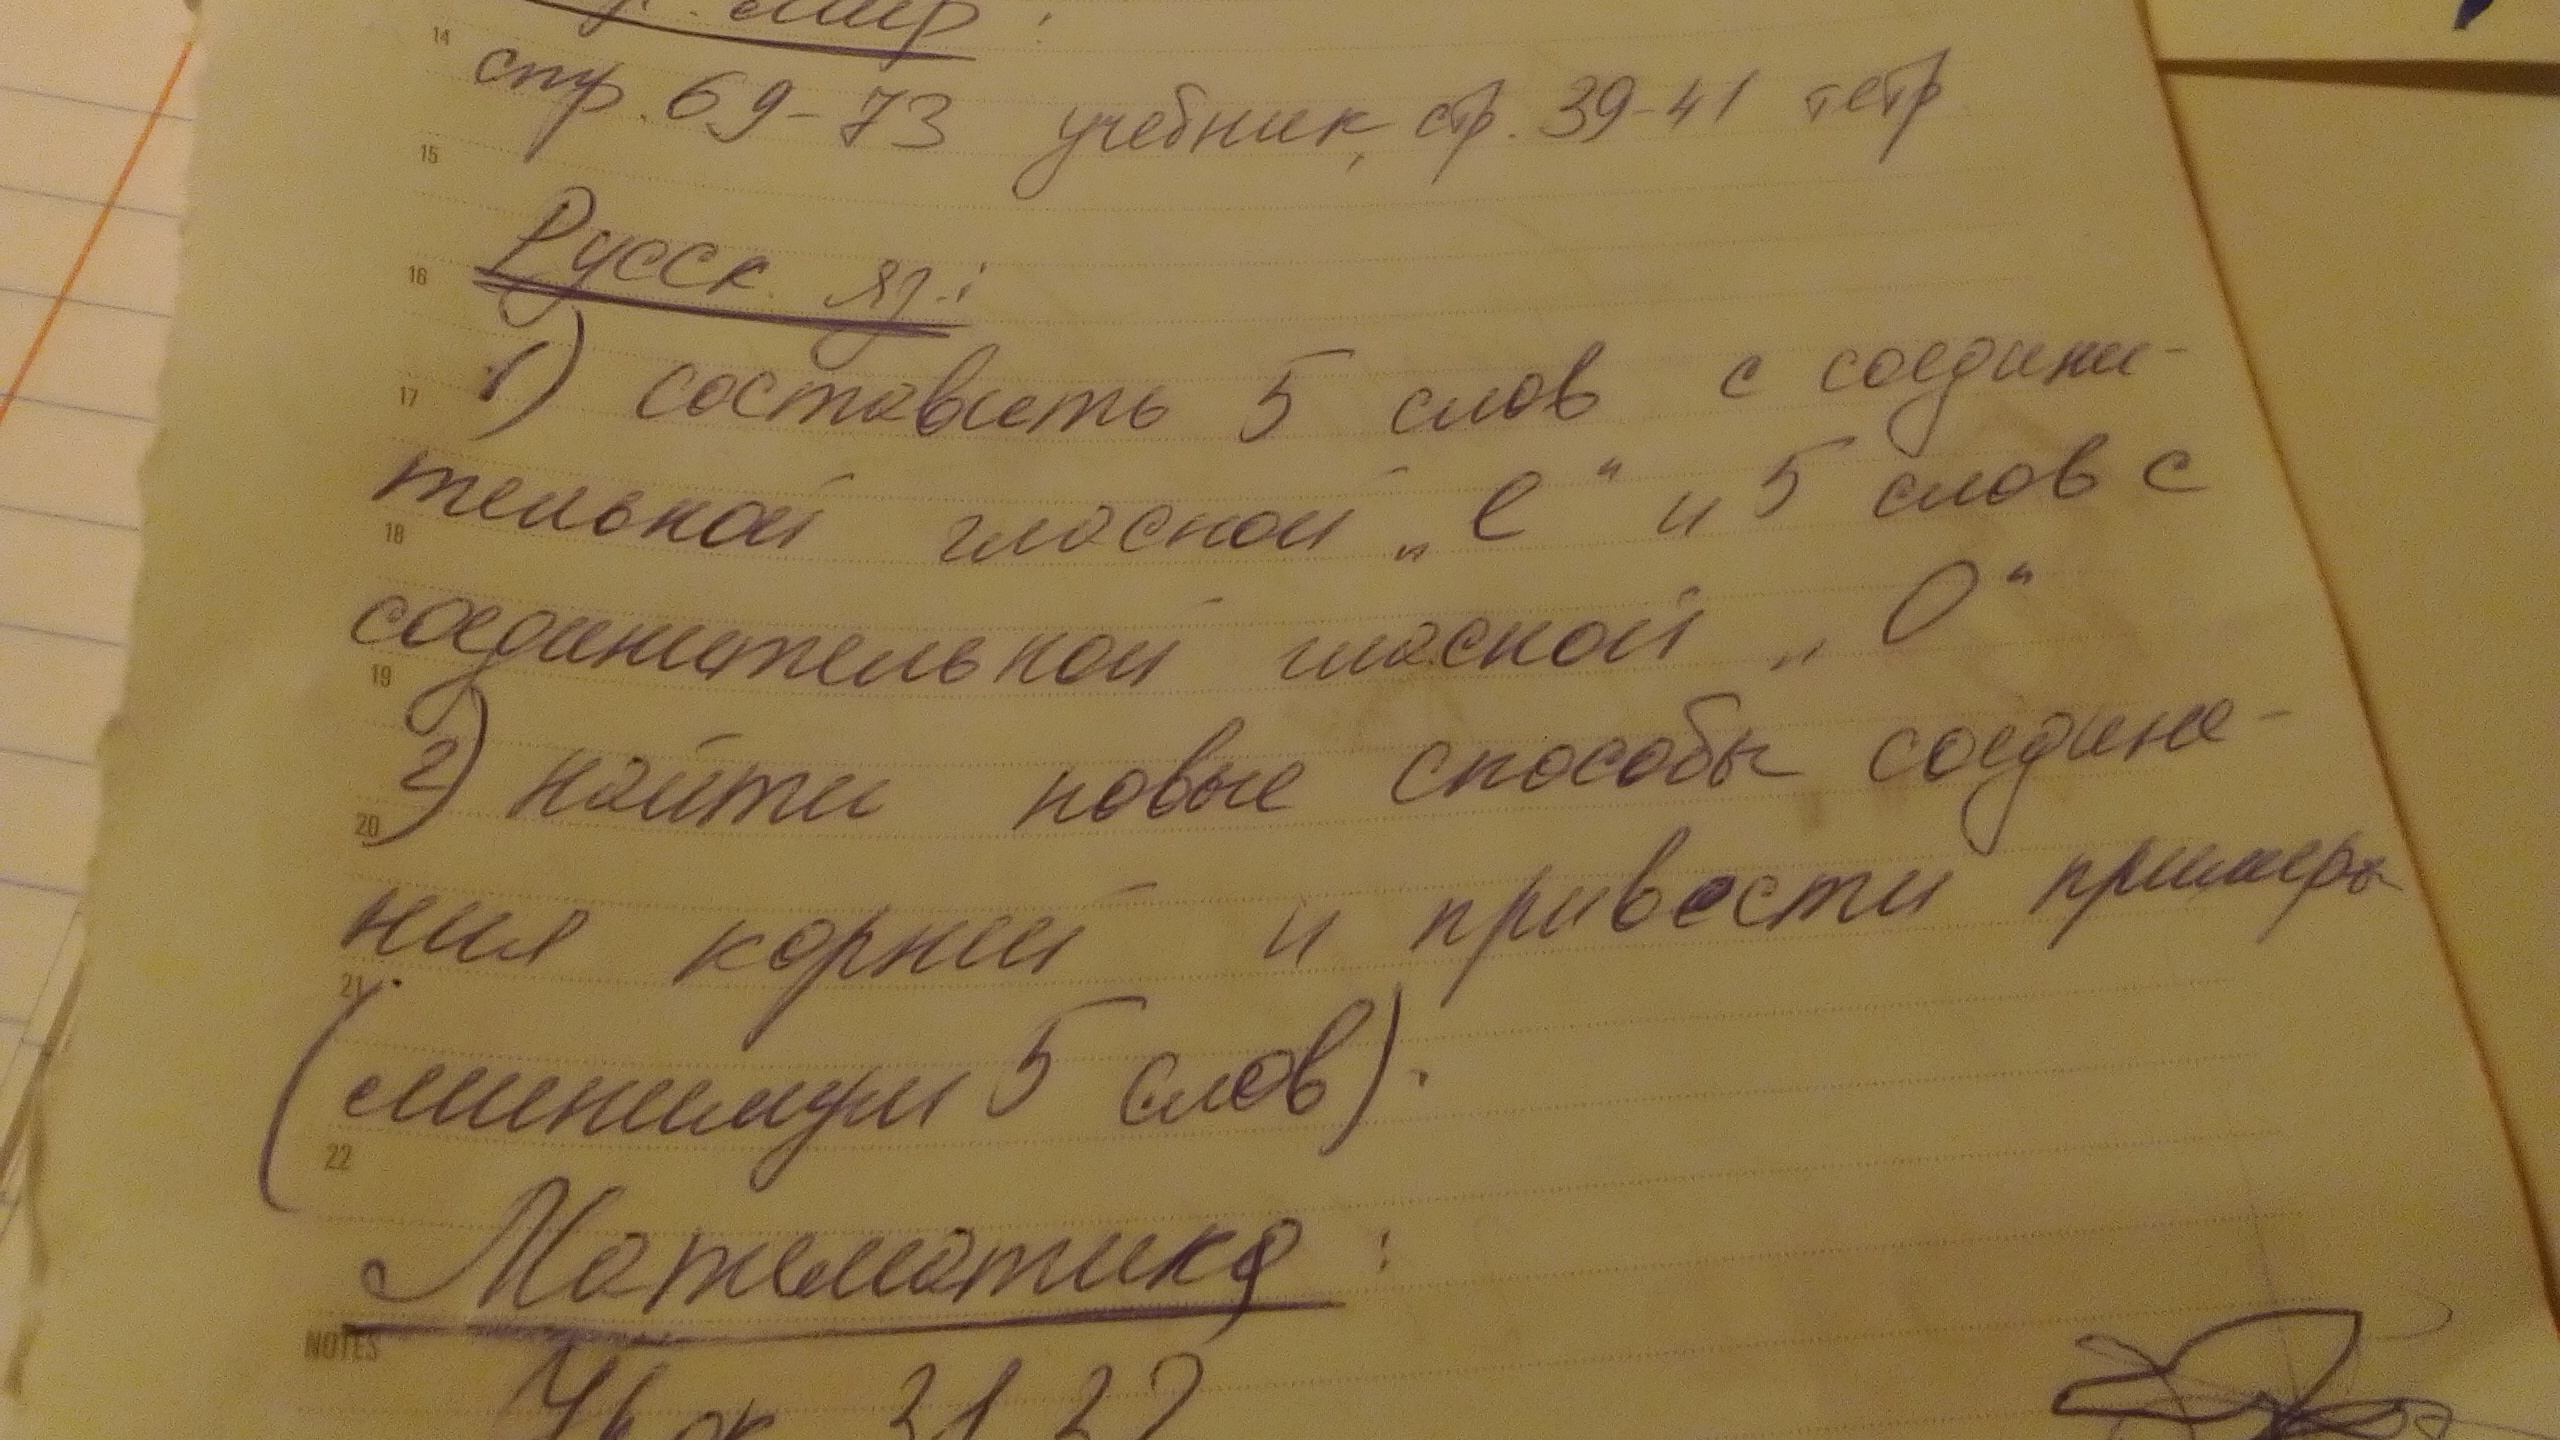 мир:
14
стр. 69-73 учебник, стр. 39-41 тетр
15
Русск. яз.:
16
1) составить 5 слов с соедини-
17
тельной гласной „е“ и 5 слов с
18
соединительной гласной „О“
19
2) найти новые способы соедине-
20
ния корней и привести примеры
21
(минимум 5 слов).
22
Математика:
NOTES